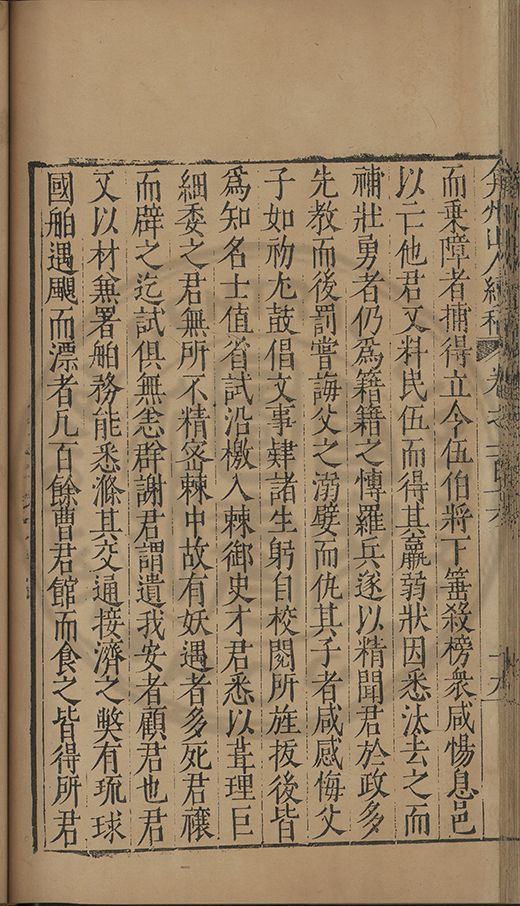 弇州山人續稿 卷之一百十六 十九
而乗障者捕得立令伍伯將下箠殺榜衆咸惕息邑
以亡他君又料民伍而得其羸弱狀因悉汰去之而
補壯勇者仍爲籍籍之慱羅兵遂以精聞君於政多
先教而後罰嘗誨父之溺嬖而仇其子者咸感悔父
子如初尤鼓倡文事肄諸生躬自校閱所旌扳後皆
爲知名士值省試沿檄入棘御史才君悉以葺理巨
細委之君無所不精宻棘中故有妖遇者多死君禳
而辟之迄試俱無恙群謝君謂遺我安者顧君也君
又以材兼署舶務能悉滌其交通接濟之獘有琉球
國舶遇颶而漂者凡百餘曹君館而食之皆得所君